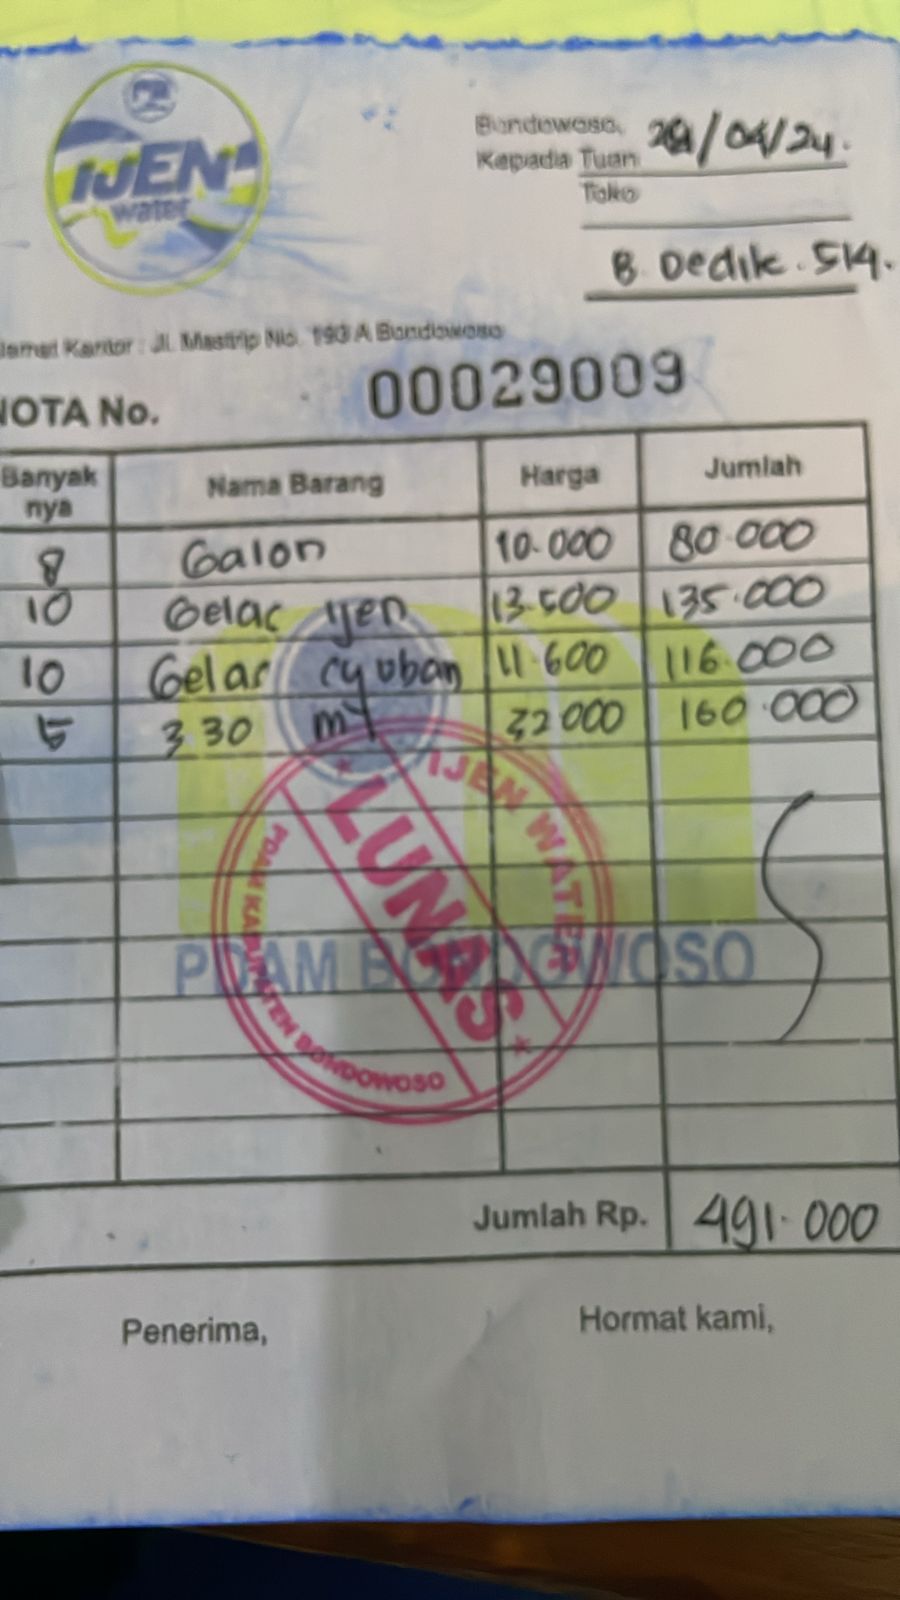 IJEN
water
Bondowoso, /04/24.
Kepada Tuan
Toko
B. Dedik. SKI.
lamat Kantor : Jl. Mastrip No. 193 A Bondowoso
NOTA No. 00029009
Banyak nya Nama Barang Harga Jumlah
8 Galon 10.000 80.000
10 Gelas Ijen 13.500 135.000
10 Gelas 11.600 116.000
5 330 ml 32000 160.000
LUNAS
IJEN WATER
PDAM KABUPATEN BONDOWOSO
PDAM BONDOWOSO
Jumlah Rp. 491.000
Penerima, Hormat kami,